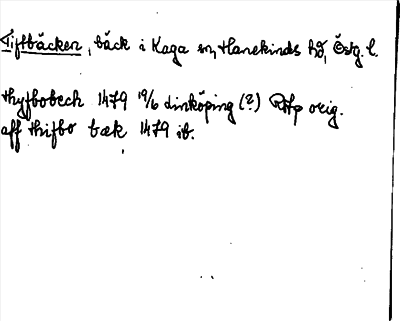 Tiftbäcken, bäck i Kaga sn, Hanekinds hd, Östg. l.
thyfbobech 1479 19/6 Linköping (?) RAp orig.
aff thifbo bæk 1479 ib.